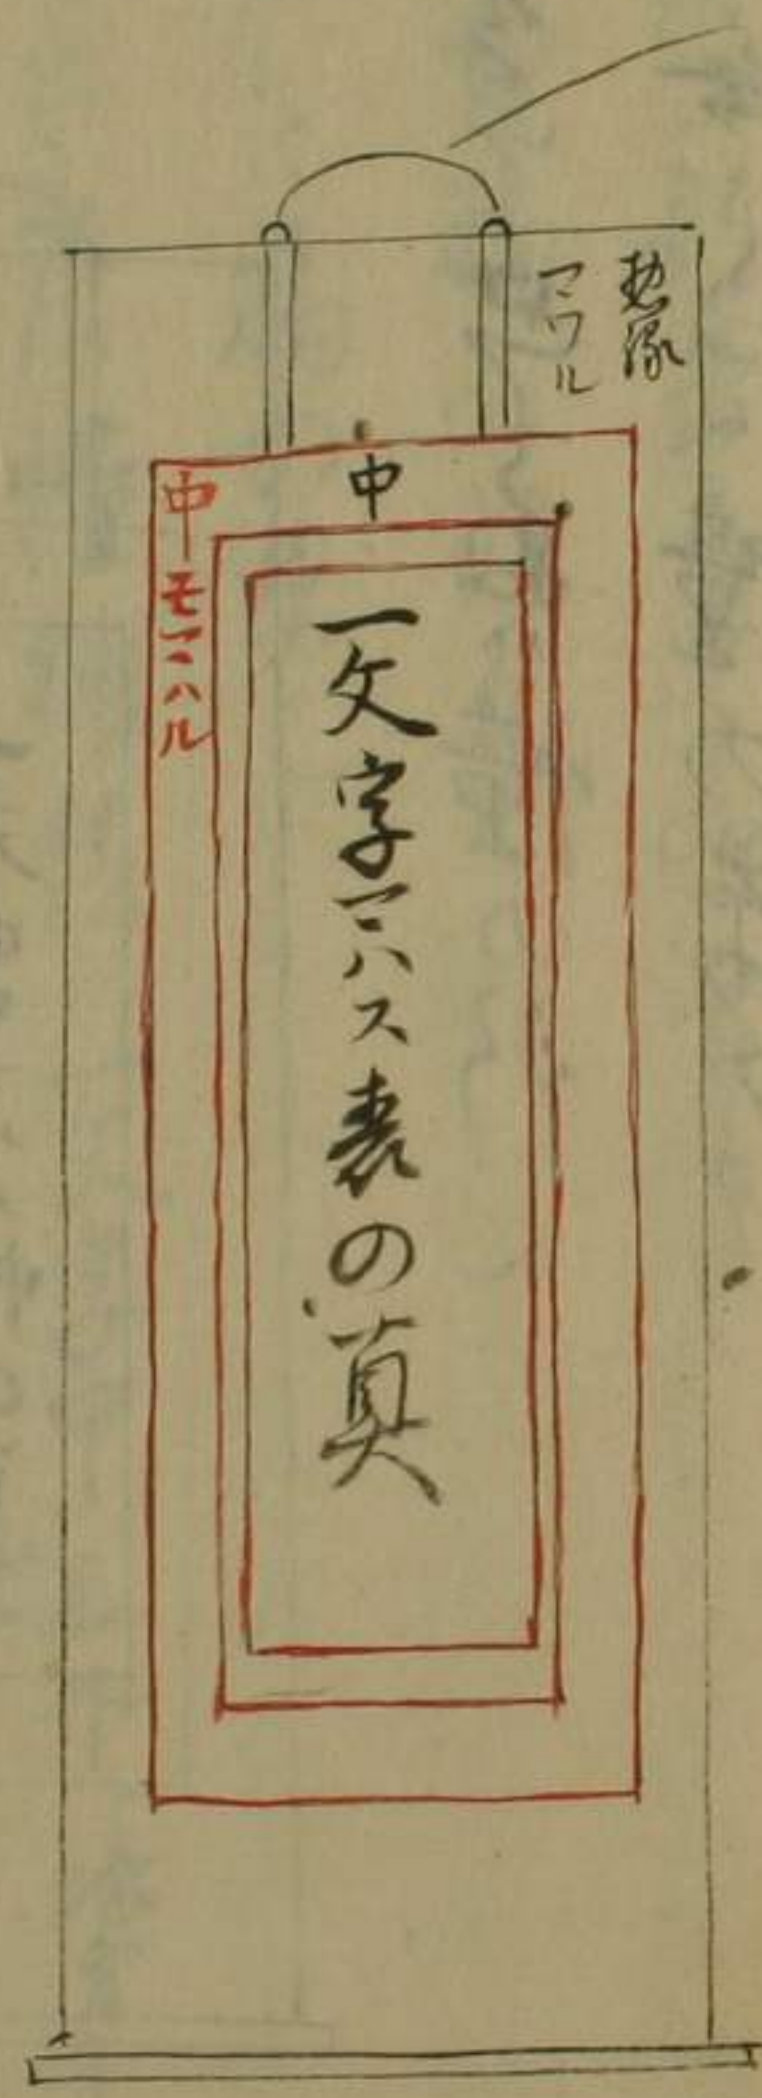 惣縁
マワル
中
中モマハル
一文字マハス表の真